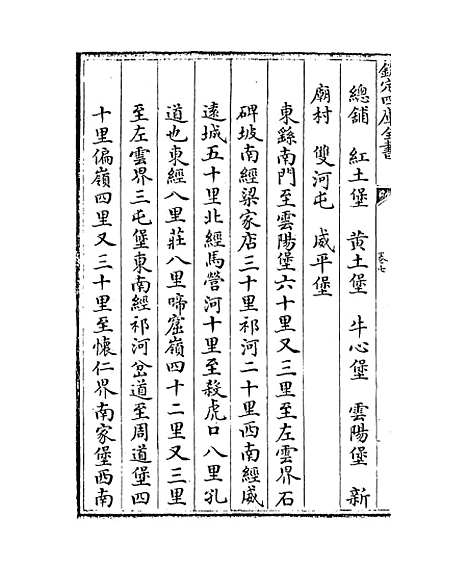 欽定四庫全書
卷七
總鋪　紅土堡　黄土堡　牛心堡　雲陽堡　新
廟村　雙河屯　威平堡
東繇南門至雲陽堡六十里又三里至左雲界石
碑坡南經梁家店三十里祁河二十里西南經威
逺城五十里北經馬營河十里至殺虎口八里孔
道也東經八里莊八里啼窟嶺四十二里又三里
至左雲界三屯堡東南經祁河岔道至周道堡四
十里偏嶺四里又三十里至懷仁界南家堡西南